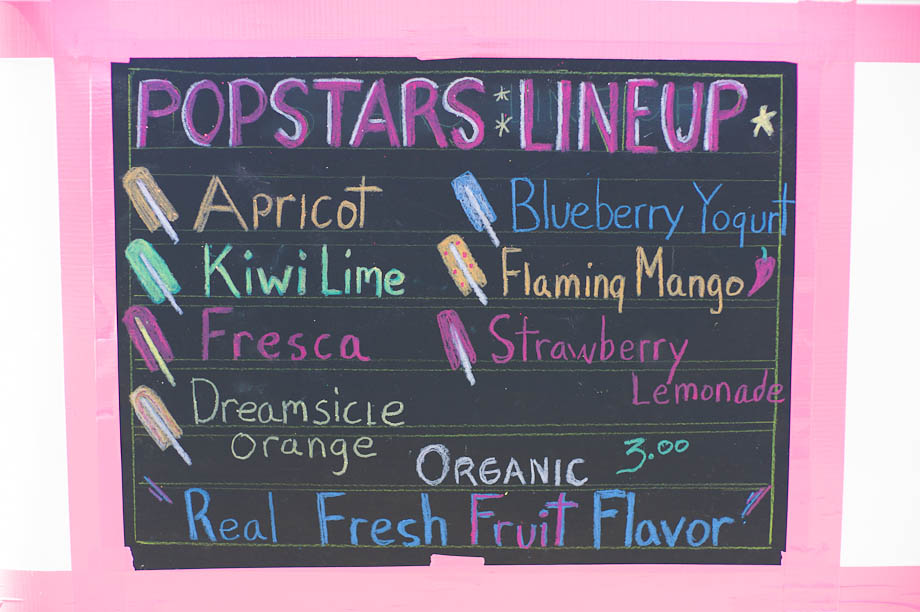 POPSTARS LINEUP
Apricot
Blueberry Yogurt
Kiwi Lime
Flaming Mango
Fresca
Strawberry
Lemonade
Dreamsicle
orange
ORGANIC 3.00
Real Fresh Fruit Flavor